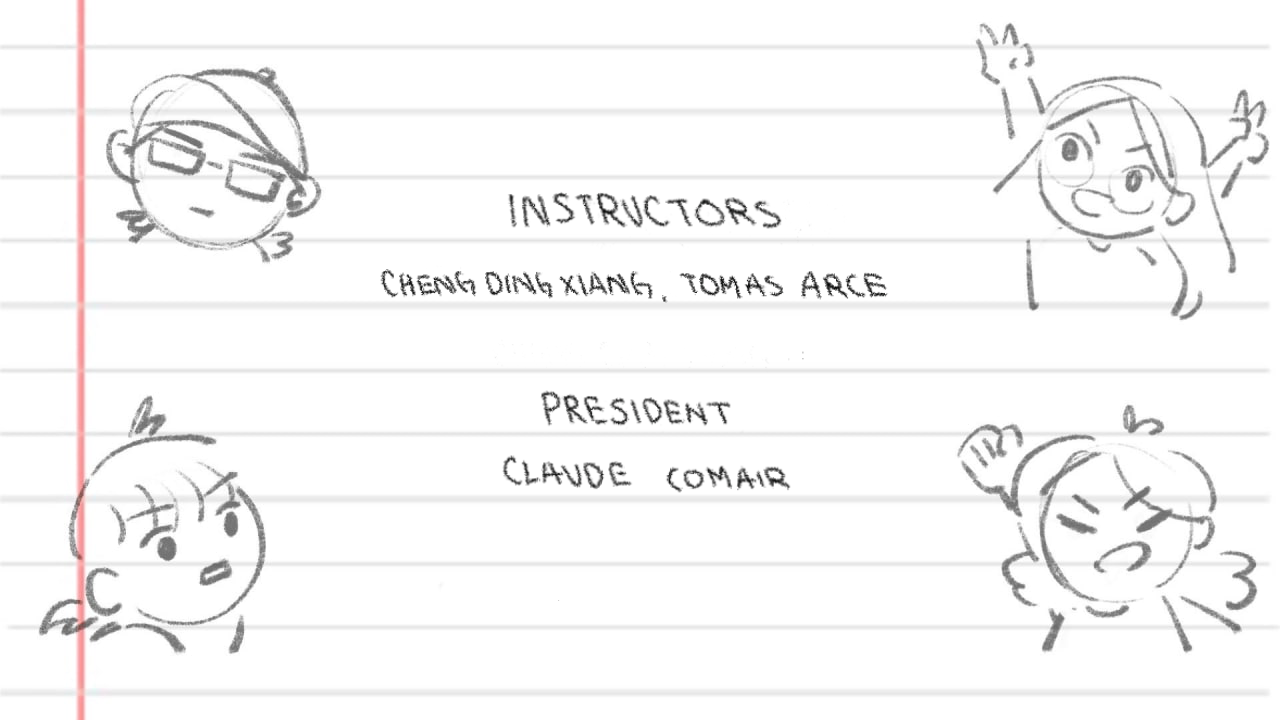 INSTRUCTORS
CHENG DING XIANG, TOMAS ARCE
PRESIDENT
CLAUDE COMAIR